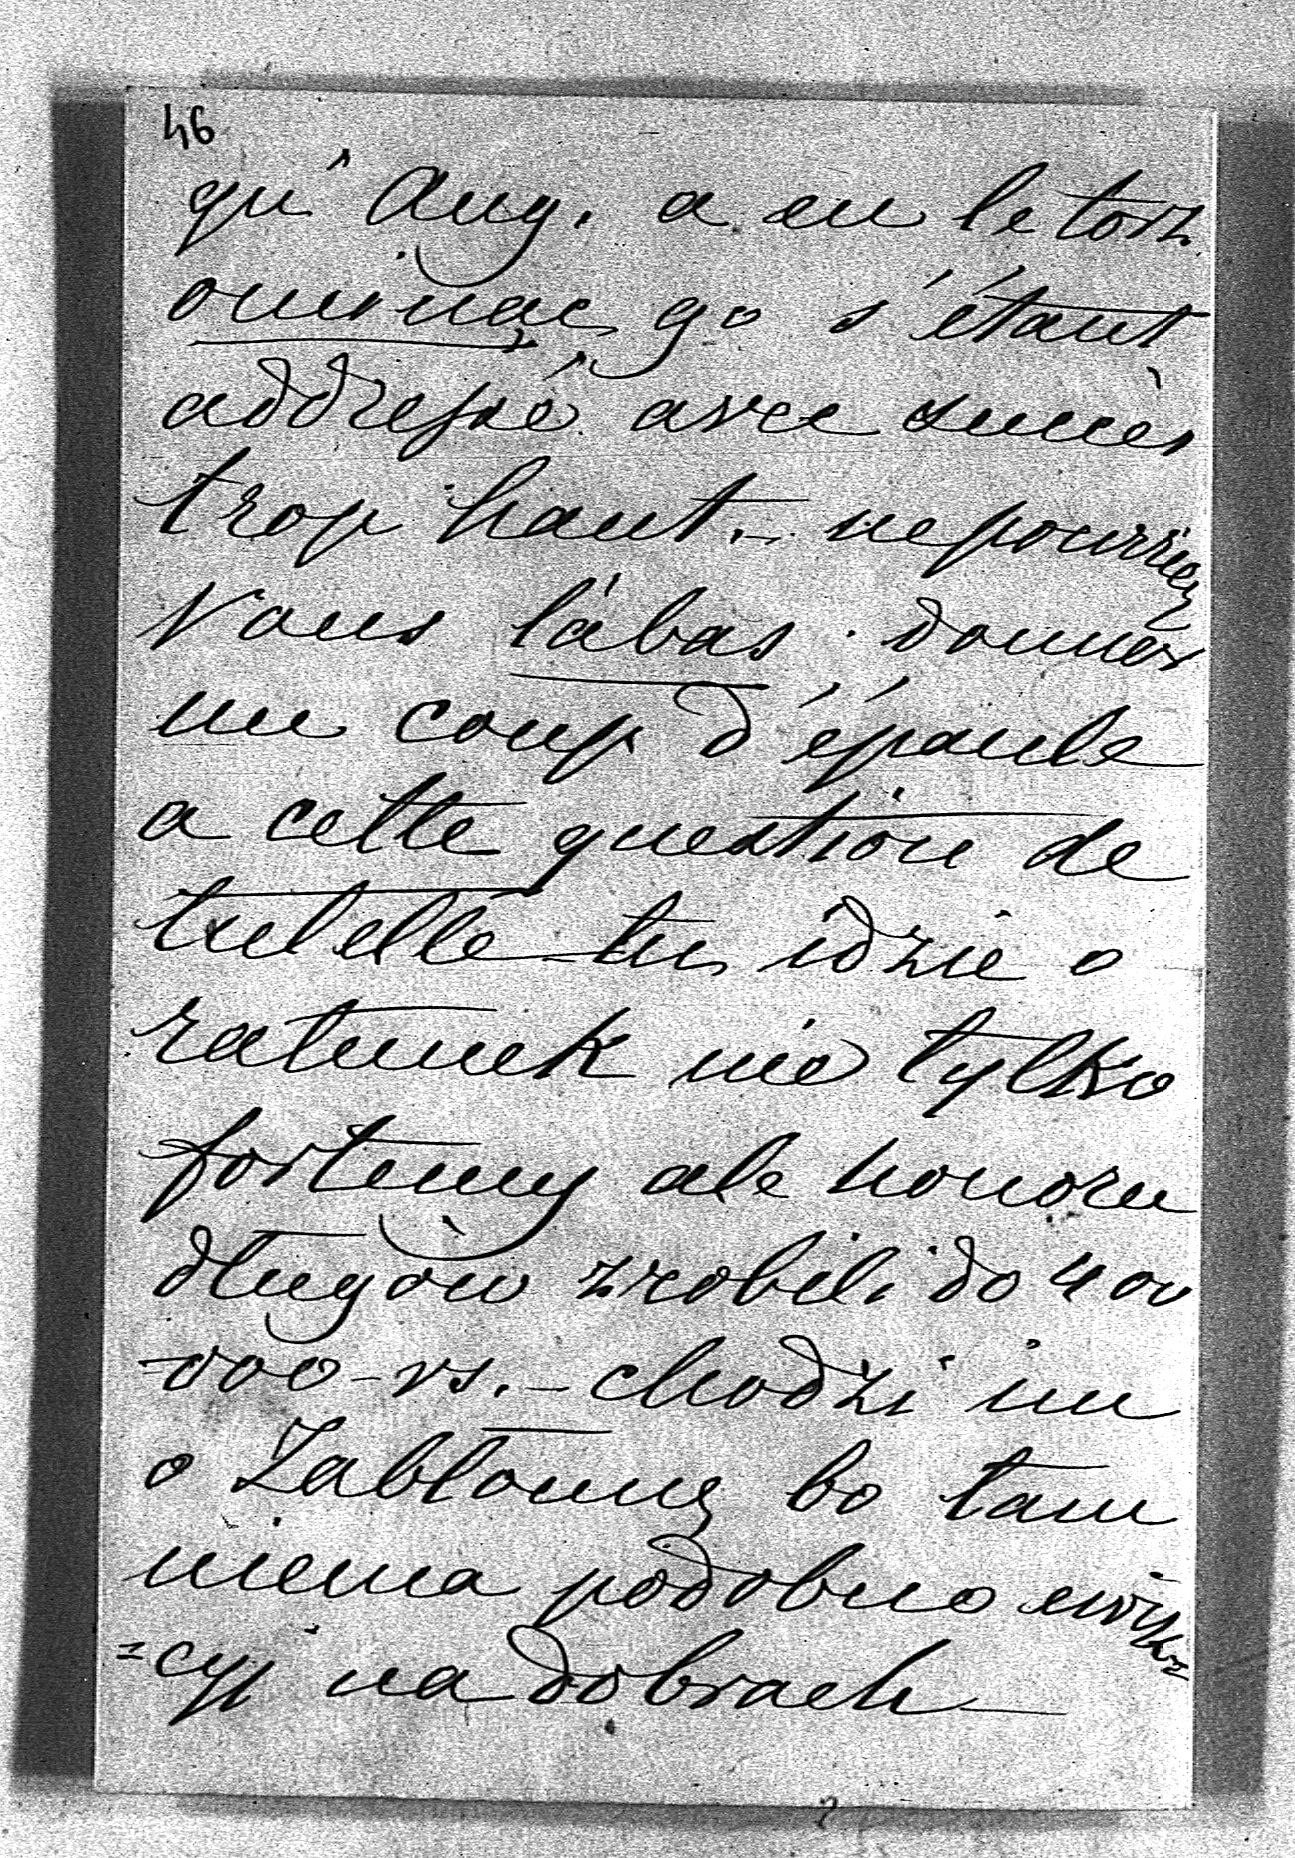 46
qu' Aug. a eu le tort
ominąć go s'étant
addressé avec succès
trop haut. – ne pourriez
vous làbas donner
un coup d'épaule
a cette question de
tutelle – tu idzie o
ratunek nie tylko
fortuny ale honoru
długów zrobili do 400
000 – rs. – chodzi im
o Zabłonnę bo tam
niema podobno ewik=
=cyj na dobrach –